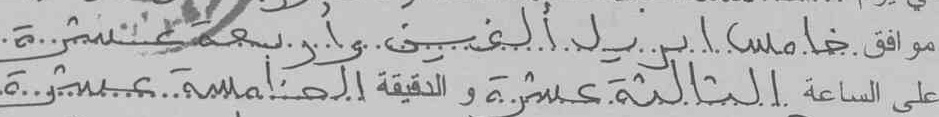 موافق خامس ابريل ألفين وأربعة عشرة
على الساعة الثالثة عشرة و الدقيقة الخامسة عشرة